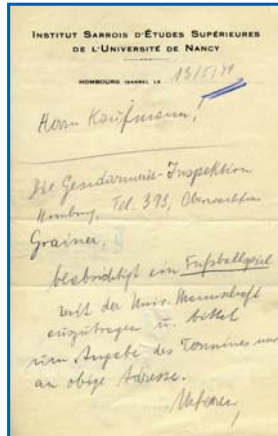 INSTITUT SARROIS D'ÉTUDES SUPÉRIEURES
DE L'UNIVERSITÉ DE NANCY
HOMBOURG (SARRE), LE 13/5/47
Herrn Kaufmann!
Die Gendarmerie-Inspektion
Homburg, Tel. 393, Oberwachtm.
Grainer,
beabsichtigt ein Fußballspiel
mit der Univ. Mannschaft
auszutragen u. bittet
um Angabe des Termines
an obige Adresse.